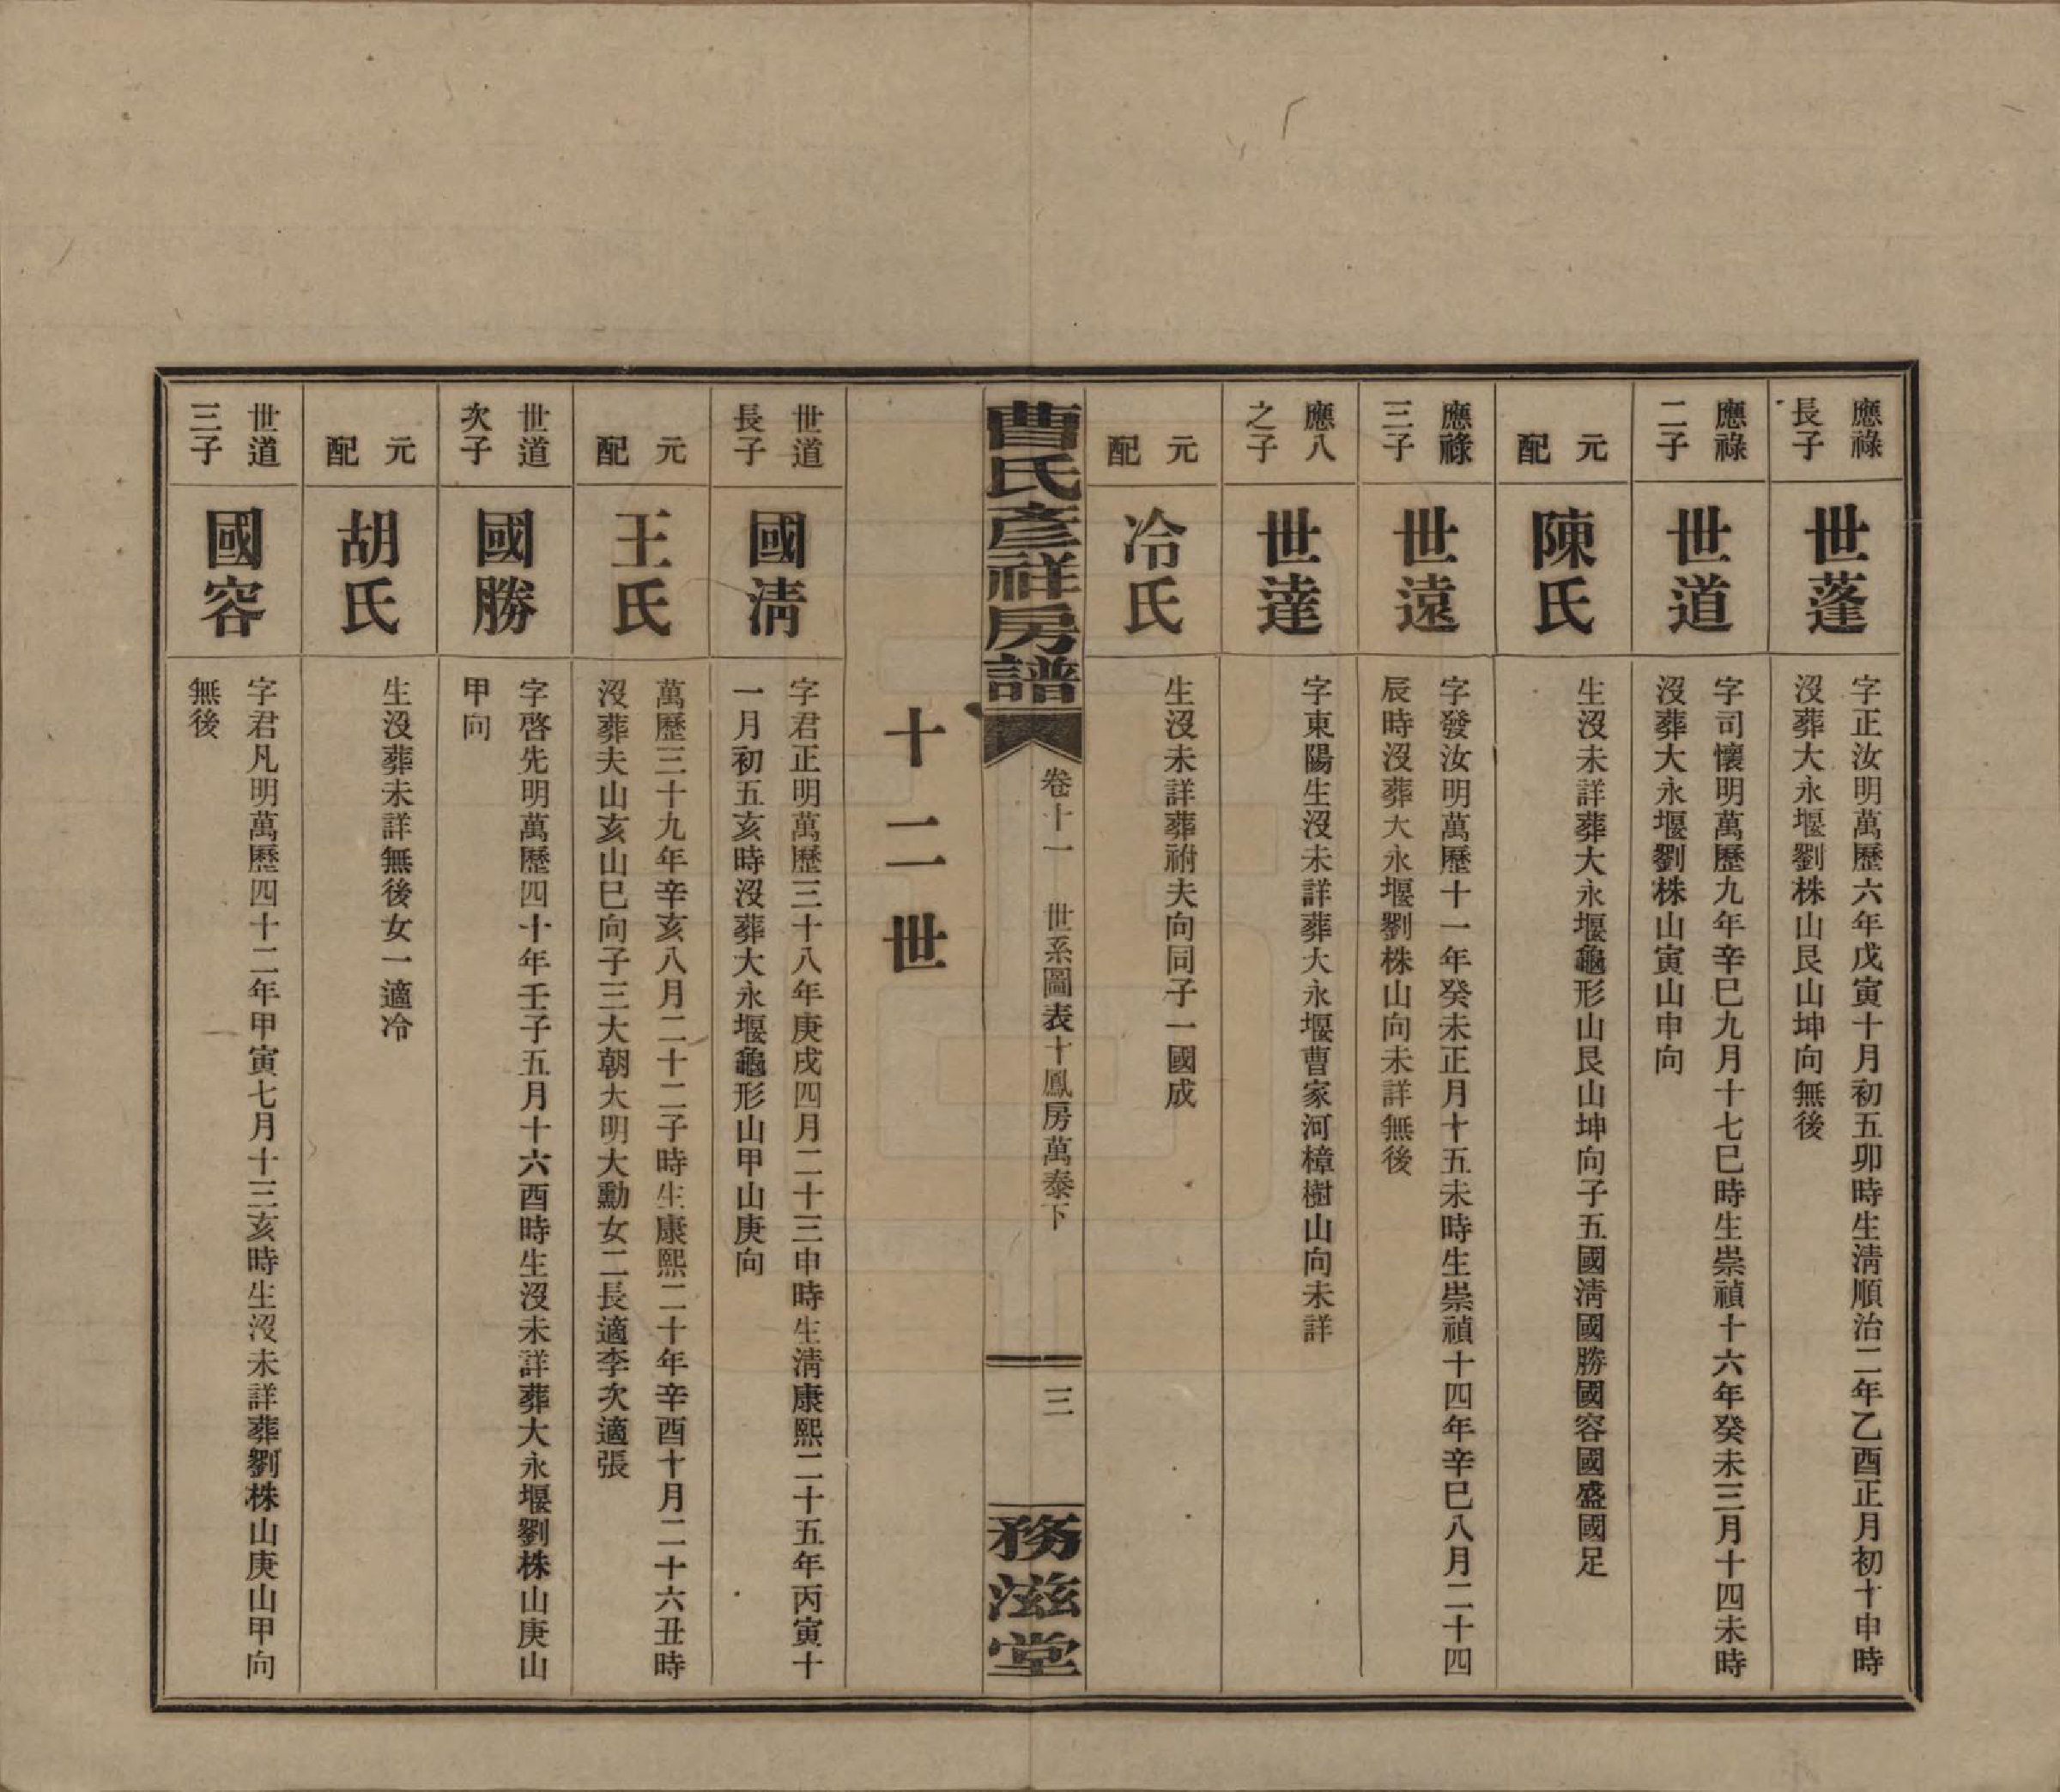 應祿
長子
世蓬
字正汝明萬歷六年戊寅十月初五卯時生淸順治二年乙酉正月初十申時
沒葬大永堰劉株山艮山坤向無後
應祿
二子
世道
字司懷明萬歷九年辛巳九月十七巳時生崇禎十六年癸未三月十四未時
沒葬大永堰劉株山寅山申向
元
配
陳氏
生沒未詳葬大永堰龜形山艮山坤向子五國淸國勝國容國盛國足
應祿
三子
世遠
字發汝明萬歷十一年癸未正月十五未時生崇禎十四年辛巳八月二十四
辰時沒葬大永堰劉株山向未詳無後
應八
之子
世達
字東陽生沒未詳葬大永堰曹家河樟樹山向未詳
元
配
冷氏
生沒未詳葬祔夫向同子一國成
曹氏彥祥房譜
卷十一 世系圖表十鳳房萬泰下
三
務滋堂
十二世
世道
長子
國淸
字君正明萬歷三十八年庚戌四月二十三申時生淸康熙二十五年丙寅十
一月初五亥時沒葬大永堰龜形山甲山庚向
元
配
王氏
萬歷三十九年辛亥八月二十二子時生康熙二十年辛酉十月二十六丑時
沒葬夫山亥山巳向子三大朝大明大勳女二長適李次適張
世道
次子
國勝
字啓先明萬歷四十年壬子五月十六酉時生沒未詳葬大永堰劉株山庚山
甲向
元
配
胡氏
生沒葬未詳無後女一適冷
世道
三子
國容
字君凡明萬歷四十二年甲寅七月十三亥時生沒未詳葬劉株山庚山甲向
無後